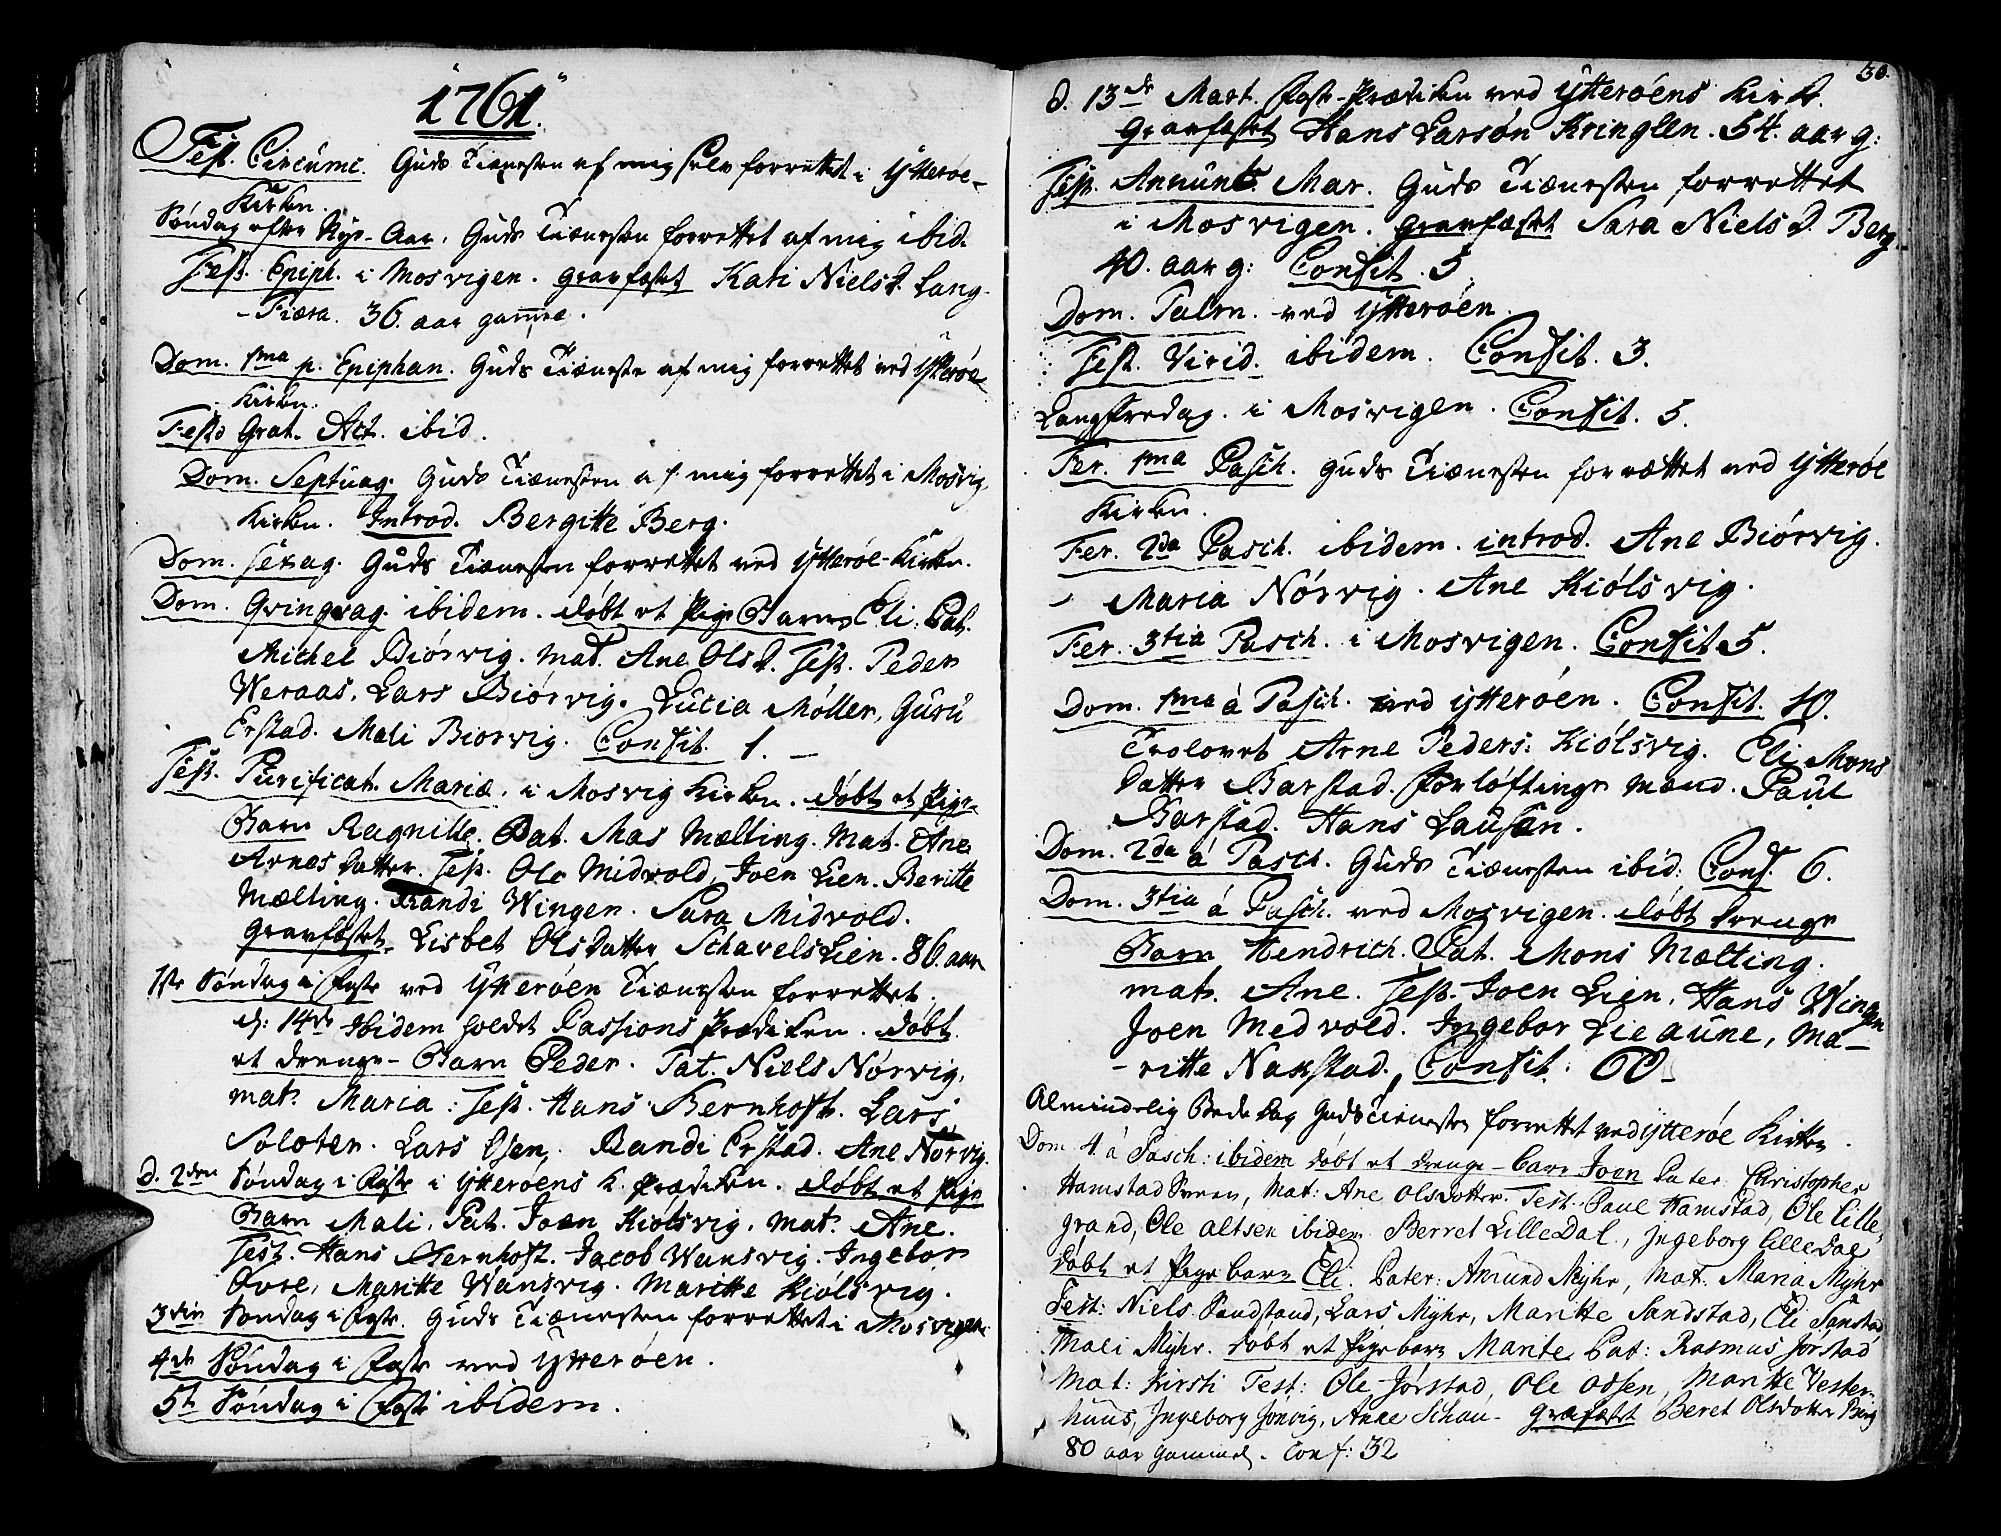 1761.
Fest. Circumc. Guds Tiænesten af mig selv forrettet i Ytterøe-
Kirken.
Søndag efter Nye-Aar. Guds Tiænesten forrettet af mig ibid.
Fest. Epiph. i Mosvigen. gravfæstet Kari Nielsd. Lang-
Fiæra. 36. aar gammel.
Dom. 1ma p. Epiphan. Guds Tiæneste af mig forrettet ved Ytterøe
Kirken.
Festo Grat. Act. ibid.
Dom. Septuag. Guds Tiænesten af mig forrettet i Mosvig
Kirken. Introd. Bergitte Berg.
Dom. Sexag. Guds Tiænesten forrettet ved Ytterøe-Kirken.
Dom. Qvinqvag. ibidem. døbt et Pige Barn Eli. Pat.
Michel Biørvig. mat. Ane Olsd. Test. Peder
Weraas. Lars Biørvig. Lucia Møller, Guru
Erstad. Mali Biørvig. Confit. 1. –
Fest. Purificat. Mariæ. i Mosvig Kirken. døbt et Pige
Barn Ragnille. Pat. Mas Mælting. Mat. Ane
Arnesdatter. Test. Ole Midvold, Joen Lien. Beritte
Mælting. Randi Wingen. Sara Midvold.
Gravfæstet. Lisbet Olsdatter SchavelsLien. 86. aar
1ste Søndag i Faste ved Ytterøen Tiænesten forrettet.
d: 14de Ibidem holdet Passions Prædiken. døbt
et drenge-Barn Peder. Pat. Niels Nørvig.
mat. Maria. Test. Hans Bernhoft. Lars
Soloten. Lars Osen. Randi Erstad. Ane Nørvig.
d. 2den Søndag i Faste i Ytterøens K. Prædiken. døbt et Pige
Barn Mali. Pat. Joen Kiølsvig. mat. Ane.
Test. Hans Bernhoft. Jacob Wansvig. Ingebor
Øvre, Maritte Wansvig. Maritte Kiølsvig.
3die Søndag i Faste. Guds Tiænesten forrettet i Mosvigen
4de Søndag i Faste ved Ytterøen.
5te Søndag i Faste ibidem.
30.
d. 13de Mart. Faste-Prædiken ved Ytterøens Kirke.
Gravfæstet Hans Larsøn Kringlen. 54. aar g:
Fest. Annunt. Mar. Guds Tiænesten forrettet
i Mosvigen. Gravfæstet Sara Nielsd. Berg
40. aar g: Confit. 5.
Dom. Palm. ved Ytterøen.
Fest. Virid. ibidem. Confit. 3.
Langfredag. i Mosvigen. Confit. 5.
Fer. 1ma Pasch. Guds Tiænesten forrættet ved Ytterøe
Kirken.
Fer. 2da Pasch. ibidem. introd. Ane Biørvig.
Maria Nørvig. Ane Kiølsvig.
Fer. 3tia Pasch. i Mosvigen. Confit 5.
Dom. 1ma à Pasch. ved Ytterøen. Confit. 10.
Trolovet Arne Peders: Kiølsvig. Eli Mons
datter Barstad. Forløftings mænd. Paul
Barstad. Hans Lausen.
Dom. 2da à Pasch. Guds Tiænesten ibid: Conf. 6.
Dom. 3tia à Pasch. ved Mosvigen. døbt drenge
Barn Hendrich. Pat. Mons Mælting.
mat. Ane. Test. Joen Lien, Hans Wingen
Joen Medvold. Ingebor Lieaune, Ma-
-ritte Naxstad. Confit: 60.
Almindelig Bededag Guds Tienesten forrettet ved Ytterøe Kirken.
Dom 4 à Pasch: ibidem døbt et drenge-barn Joen Pater: Christopher
Hamstad, Mat: Ane Olsdotter. Test: Paul Hamstad, Ole Lille-
grand, Ole altsen ibidem. Berret LilleDal, Ingeborg LilleDal
døbt et Pige barn Eli. Pater: Amund Myhr, Mat: Maria Myhr
Test: Niels Sandstad, Lars Myhr, Maritte Sandstad, Eli Sanstad
Mali Myhr. døbt et Pigebarn Marite Pat: Rasmus Jørstad
Mat: Kirsti Test: Ole Jørstad, Ole Ossen, Maritte Vester-
huus, Ingeborg Jønvig, Anne Schau- grafæst Beret Olsdotter Berg
80 aar gammel. Conf: 32